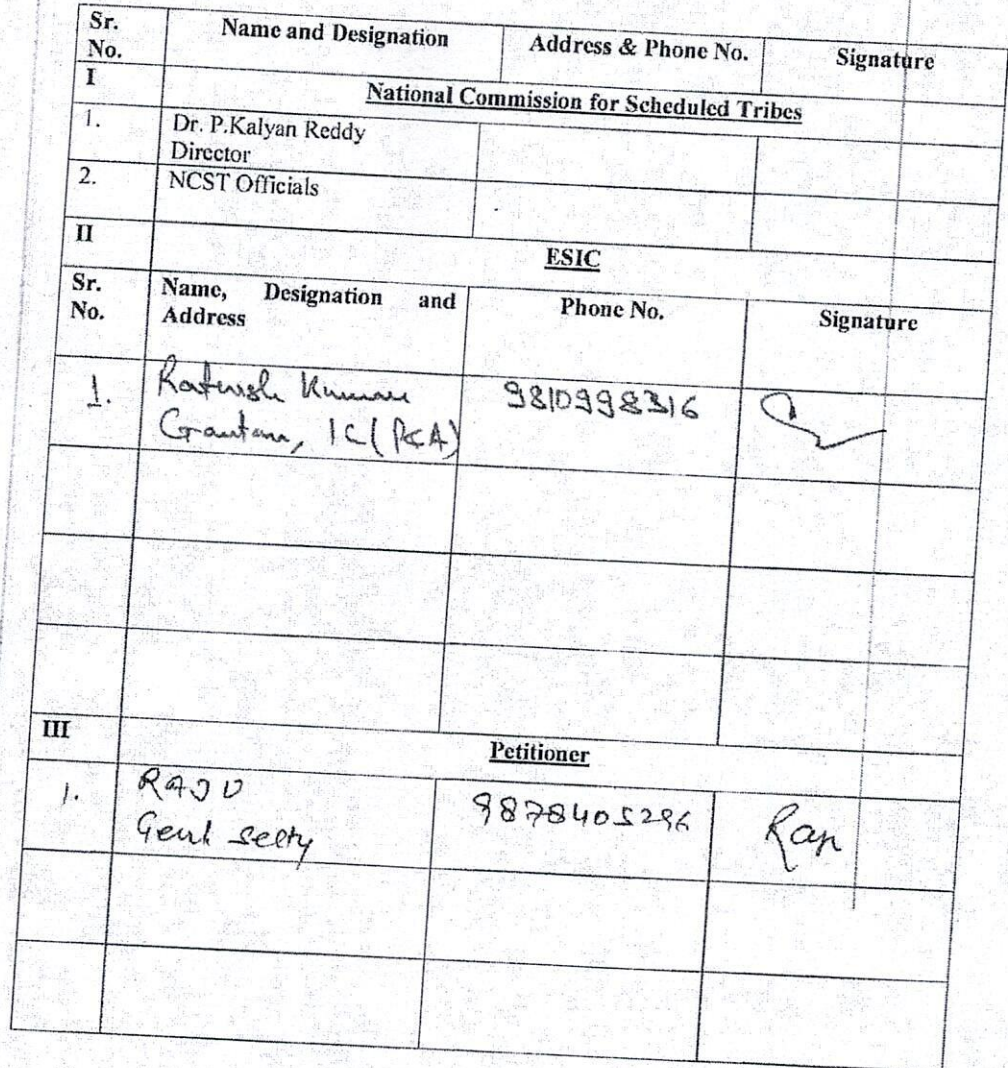 Sr. No. Name and Designation Address & Phone No. Signature
I National Commission for Scheduled Tribes
1. Dr. P.Kalyan Reddy
Director
2. NCST Officials
II ESIC
Sr. No. Name, Designation and Address Phone No. Signature
1. Kumar 9810998316
Gautam, IC (P&A)
III Petitioner
1. RAJU 9878405296
Genl Secty